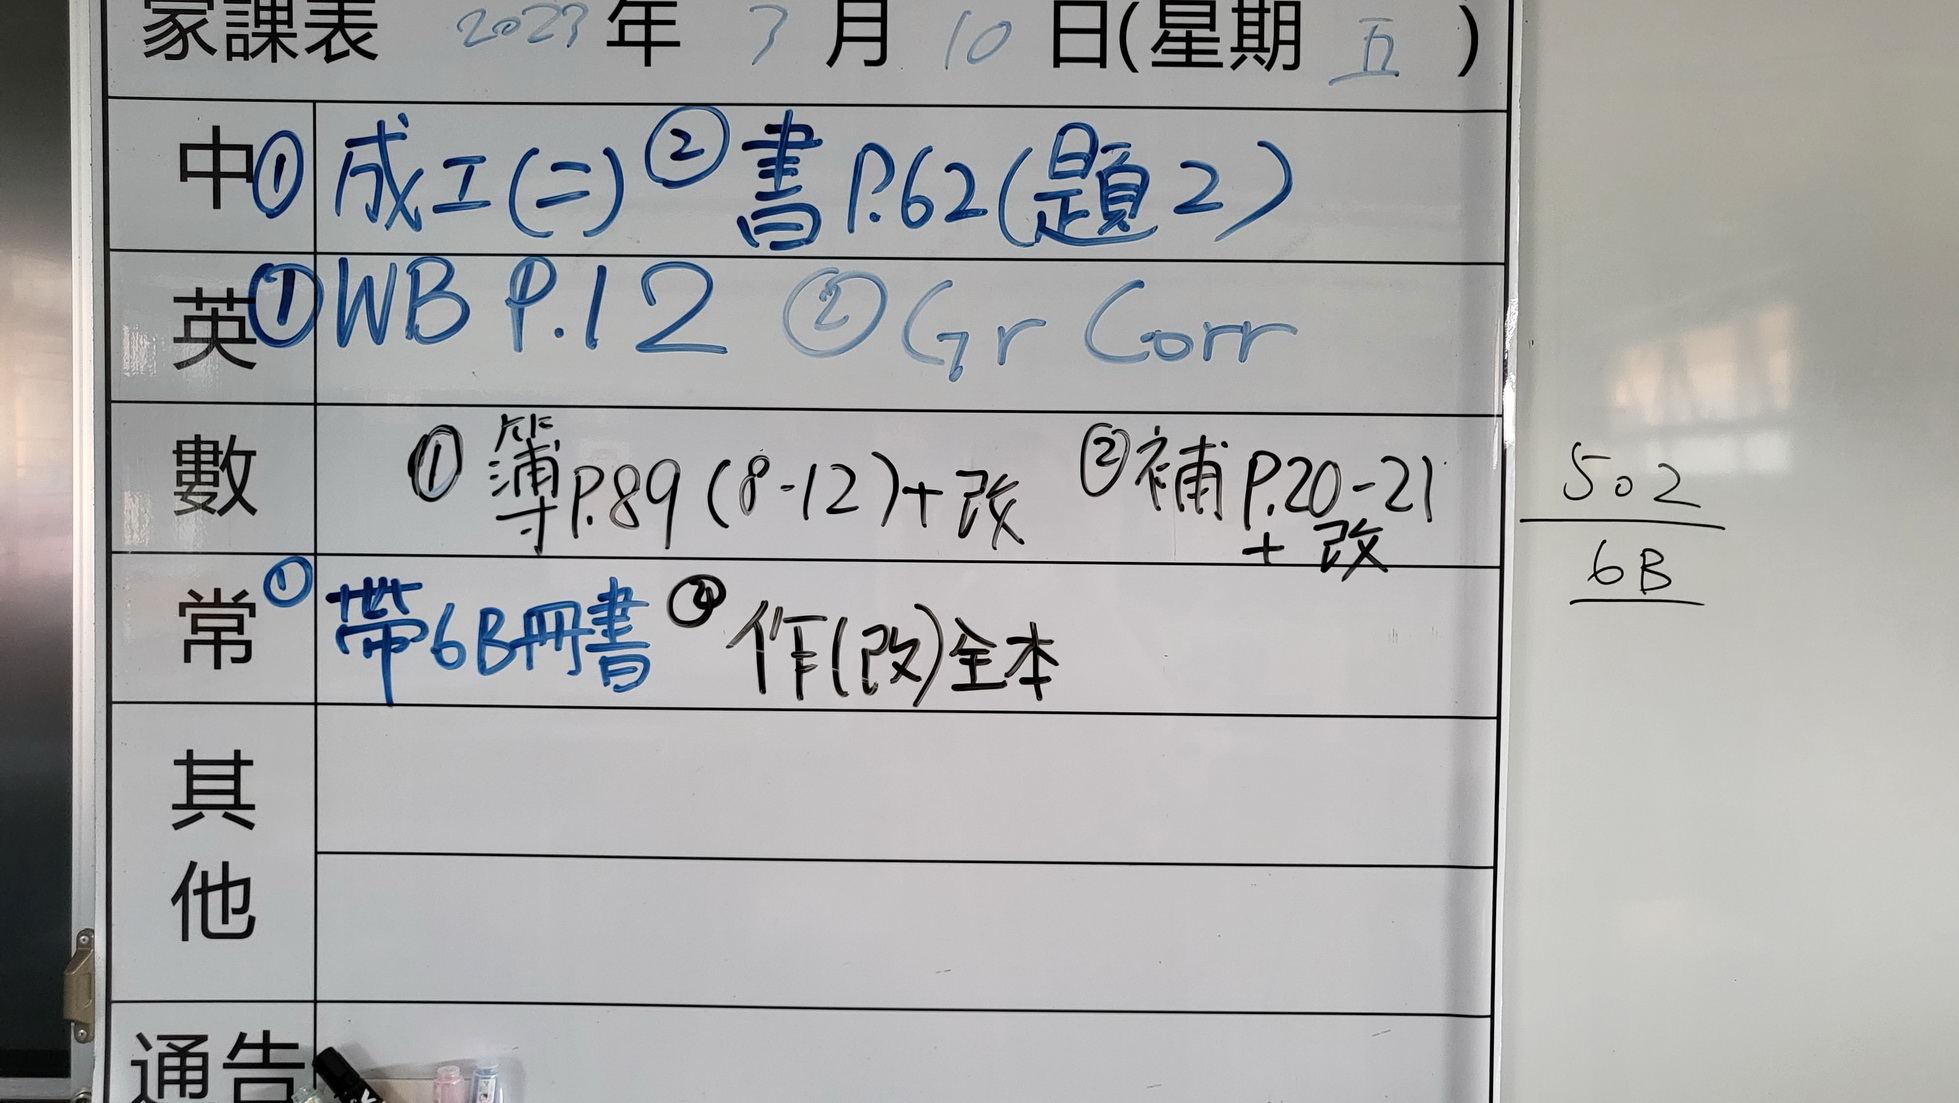 家課表 2023年3月10日(星期五)
中 ① 成工(二) ② 書P.62(題2)
英 ① WB P.12 ② Gr Corr
數 ① 簿P.89(8-12)+改 ② 補P.20-21
+改
常 ① 帶6B冊書 ② 作(改)全本
其他
通告
502
6B